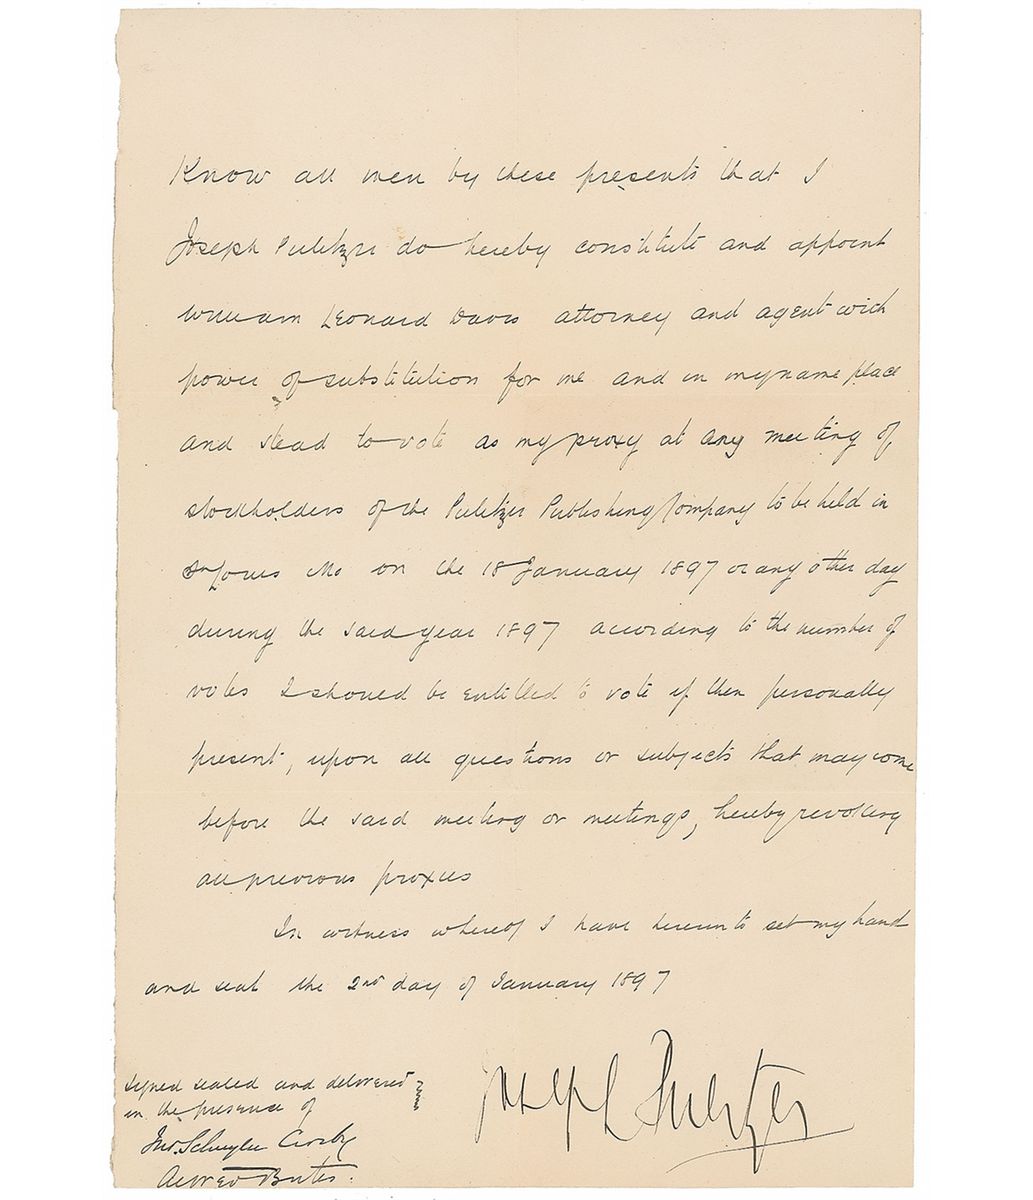 Know all men by these presents that I
Joseph Pulitzer do hereby constitute and appoint
William Leonard Davis attorney and agent with
power of substitution for me and in my name place
and stead to vote as my proxy at any meeting of
stockholders of the Pulitzer Publishing Company to be held in
St Louis Mo on the 18 January 1897 or any other day
during the said year 1897 according to the number of
votes I should be entitled to vote if then personally
present, upon all questions or subjects that may come
before the said meeting or meetings, hereby revoking
all previous proxies
In witness whereof I have hereunto set my hand
and seal the 2nd day of January 1897
signed sealed and delivered
in the presence of
Jno. Schuyler Crosby
Alfred Butes.
Joseph Pulitzer